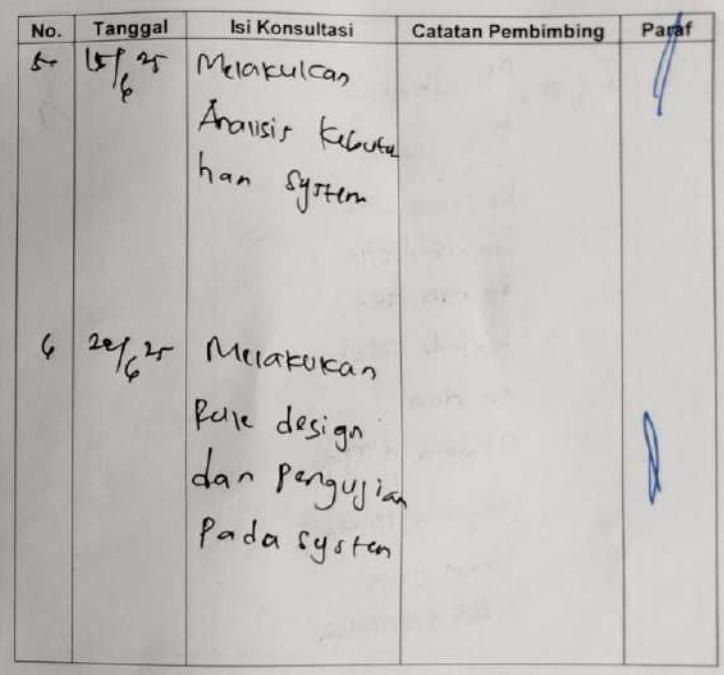 No. Tanggal Isi Konsultasi Catatan Pembimbing Paraf
5. 15/6 25 Melakukan
Analisis Kebutu
han system
6 20/6 25 Melakukan
Rule design
dan Pengujian
Pada system